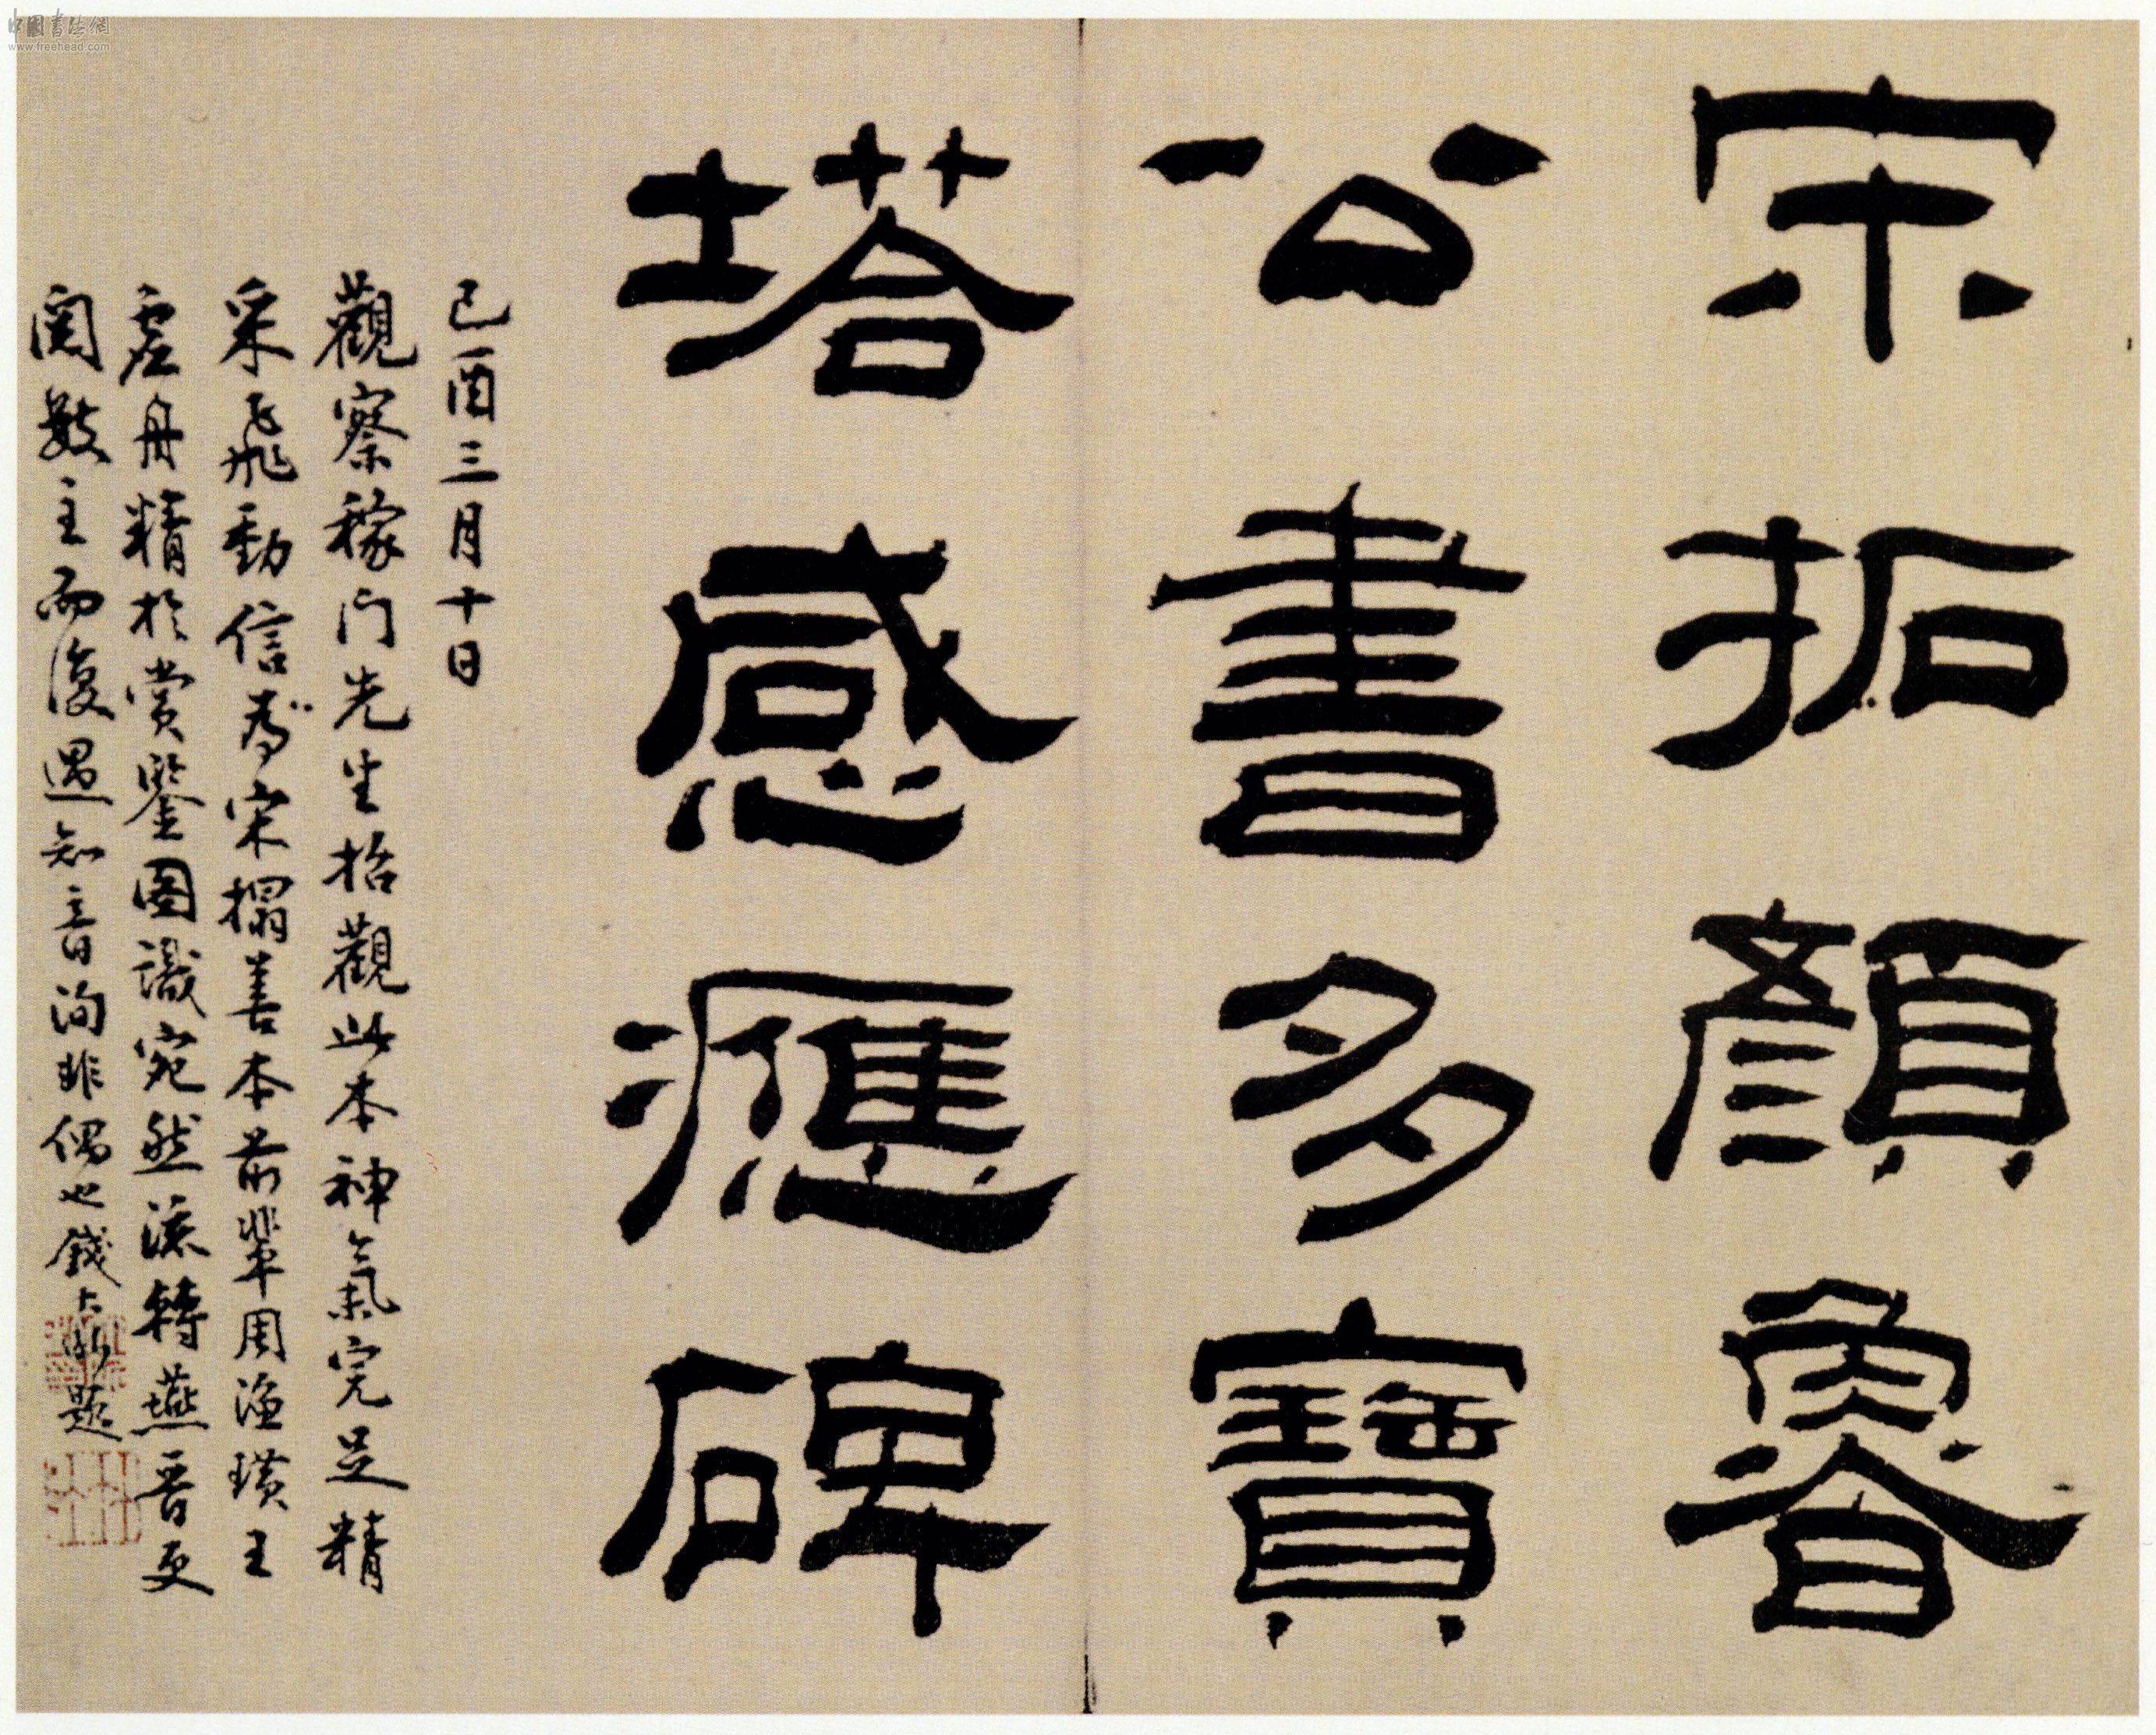 宋拓顏魯
公書多寶
塔感應碑
己酉三月十日
觀察稼門先生招觀此本神氣完足精
采飛動信為宋搨善本前輩周漁璜王
虛舟精於賞鑒圖識宛然流轉燕晉更
閱數主而復遇知音洵非偶也錢大昕題
中國書法網
www.freehead.com